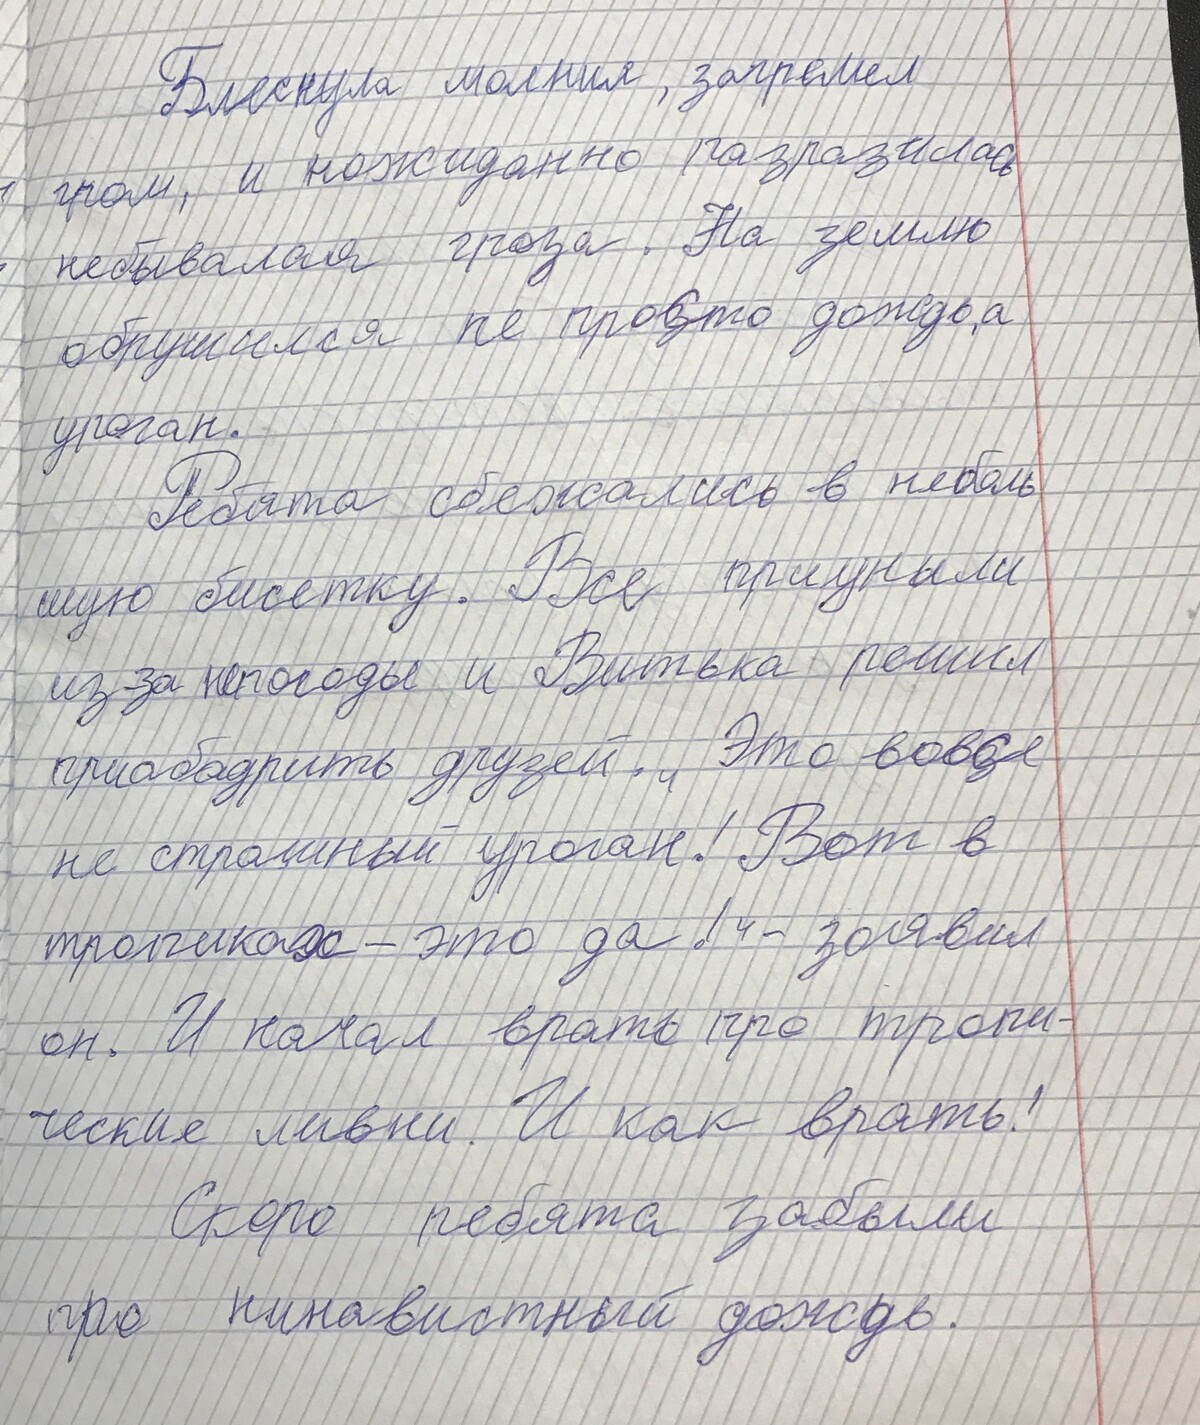 Блеснула молния, загремел
гром, и ножиданно разразилась
небывалая гроза. На землю
обрушился не просто дождь, а
ураган.
Ребята сбежались в неболь
шую бисетку. Все приуныли
из-за непогоды и Витька решил
приабадрить друзей. „ Это вовсе
не страшный ураган! Вот в
тропиках – это да!“ – заявил
он. И начал врать про тропи-
ческие ливни. И как врать!
Скоро ребята забыли
про ниневистный дождь.